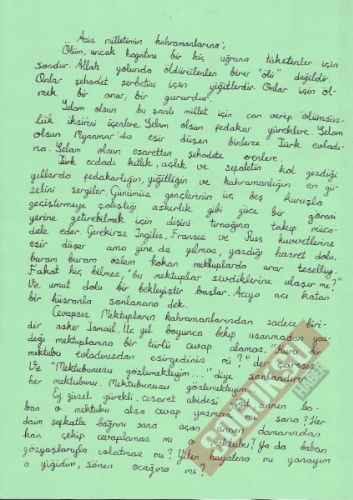 Aziz milletimin kahramanlarına;
Ölüm, ancak hayatını bir hiç uğruna tüketenler için
sondur. Allah yolunda öldürülenler birer "ölü" değildir.
Onlar şehadet şerbetini içen yiğitlerdir. Onlar için öl-
mek bir onur, bir gururdur.
Selam olsun bu şanlı millet için can verip ölümsüz-
lük iksirini içenlere. Selam olsun fedakar yüreklere. Selam
olsun Myanmar'da esir düşen binlerce Türk evladı-
na. Selam olsun esaretten şehadete erenlere.
Türk ecdadı kıtlık, açlık ve sefaletin kol gezdiği
yıllarda fedakarlığın, yiğitliğin ve kahramanlığın en gü-
zelini sergiler. Günümüz gençlerinin üç beş kuruşla
geçiştirmeye çalıştığı askerlik gibi yüce bir görevi
yerine getirebilmek için dişini tırnağına takıp müca-
dele eder. Gerekirse İngiliz, Fransız ve Rus kuvvetlerine
esir düşer ama yine de yılmaz, yazdığı hasret dolu,
buram buram özlem kokan mektuplarda arar teselliyi.
Fakat hiç bilmez, "bu mektuplar sevdiklerine ulaşır mı?"
Ve umut dolu bir bekleyiştir başlar. Acıya acı katan
bir hüsranla sonlanana dek.
Cevapsız Mektupların kahramanlarından sadece biri-
dir asker İsmail. Üç yıl boyunca bekip usanmadan yaz-
dığı mektuplarına bir türlü cevap alamaz.
mektubu evladınızdan esirgediniz mi?" der
Ve "Mektubunuzu gözlemekteyim...." diye sonlandırır
her mektubunu. Mektubunuzu gözlemekteyim
Ey güzel yürekli, cesaret abidesi yiğit annen ba-
ban o mektubu alsa cevap yazmaz mı sana? Her
daim şefkatle bağrını sana açan annen damarından
kan çekip cevaplamaz mı o mektubu? Ya da baban
gözyaşlarıyla ıslatmaz mı? Yiten hayaline mi yanayım
a yiğidim, sönen ocağına mı?